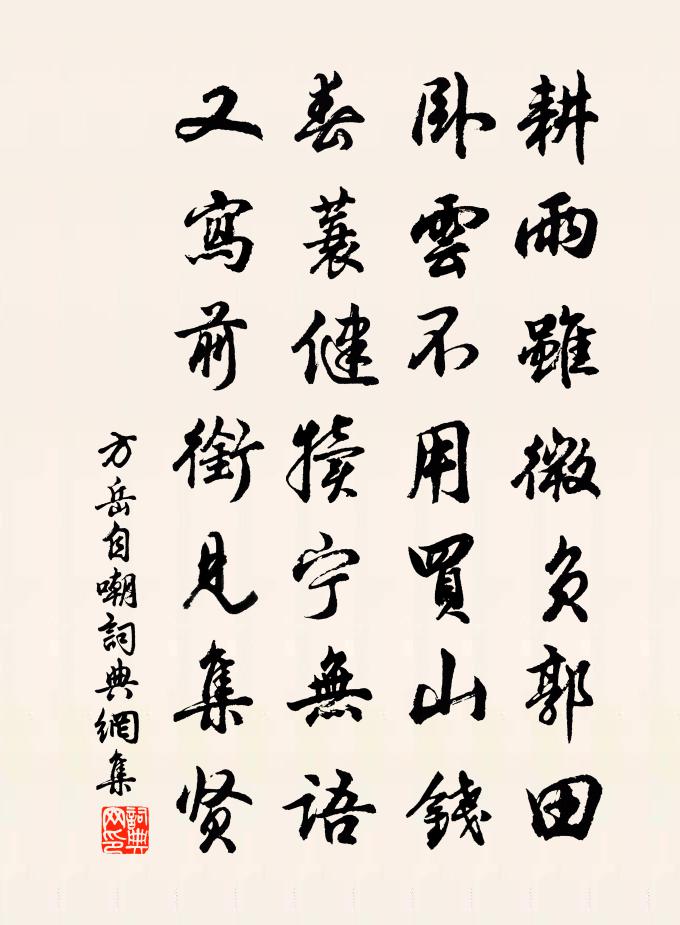 耕雨雖微負郭田
卧雲不用買山錢
春蓑健犢宁無語
又寫前銜見集贤
方岳自嘲詞典網集
詞典网印